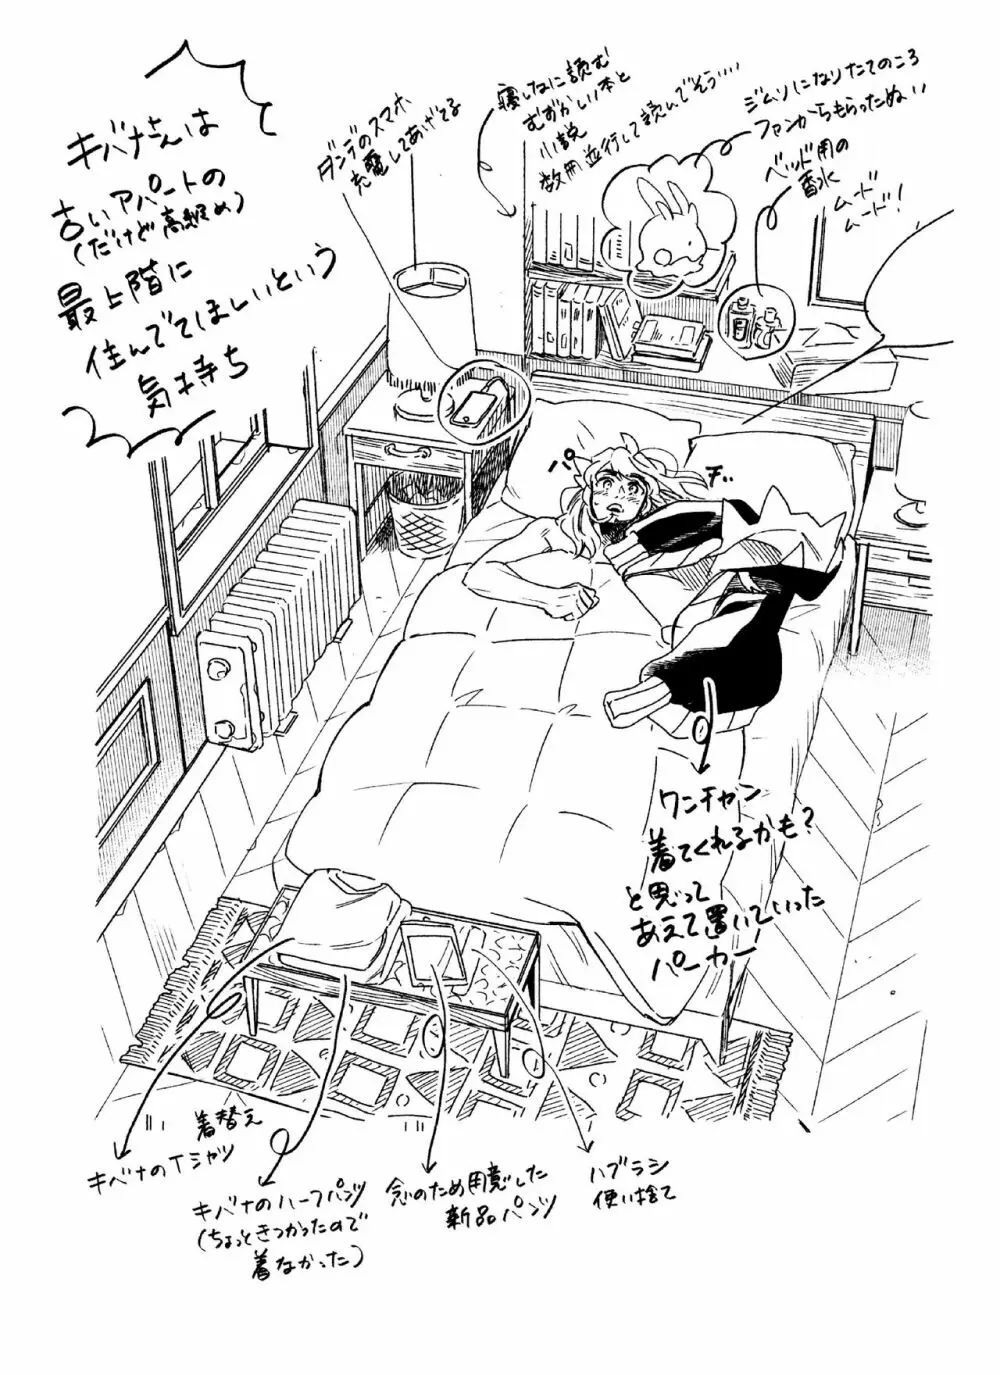 キバナさんは
古いアパートの
(だけど高級め)
最上階に
住んでてほしいという
気持ち
ダンデのスマホ
充電してあげてる
寝しなに読む
むずかしい本と
小説
数冊並行して読んでそう….
ジムリになりたてのころ
ファンからもらったぬい
ベッド用の
香水
ムード
ムード!
パ
チ..
ワンチャン
着てくれるかも?
と思って
あえて置いていった
パーカー!
着替え
キバナのTシャツ
キバナのハーフパンツ
(ちょっときつかったので
着なかった)
念のため用意した
新品パンツ
ハブラシ
使い捨て